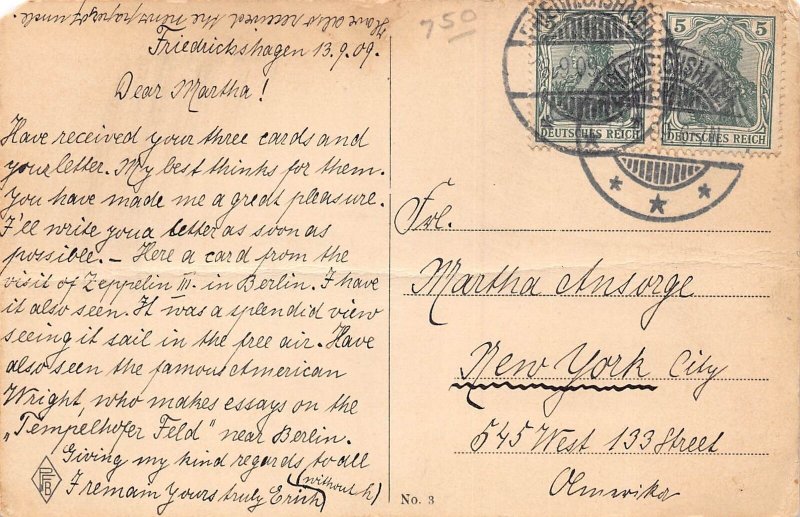 Have also received the newspaper
Friedrichshagen 13.9.09.
Dear Martha!
Have received your three cards and
your letter. My best thinks for them.
You have made me a great pleasure.
I'll write you a letter as soon as
possible. – Here a card from the
visit of Zeppelin III. in Berlin. I have
it also seen. It was a splendid view
seeing it sail in the free air. Have
also seen the famous American
Wright, who makes essays on the
„Tempelhofer Feld" near Berlin.
Giving my kind regards to all
I remam Yours truly Erich (without h)
PFB
No. 3
750
5
5
5
DEUTSCHES REICH
DEUTSCHES REICH
FRIEDRICHSHAGEN
Frl.
Martha Ansorge
New York City
545 West 133 Street
Amerika